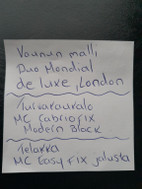 Vaunun malli
Duo Mondial
de luxe, London
Turvakaukalo
MC Cabriofix
Modern Black
Telakka
MC Easy FIX jalusta